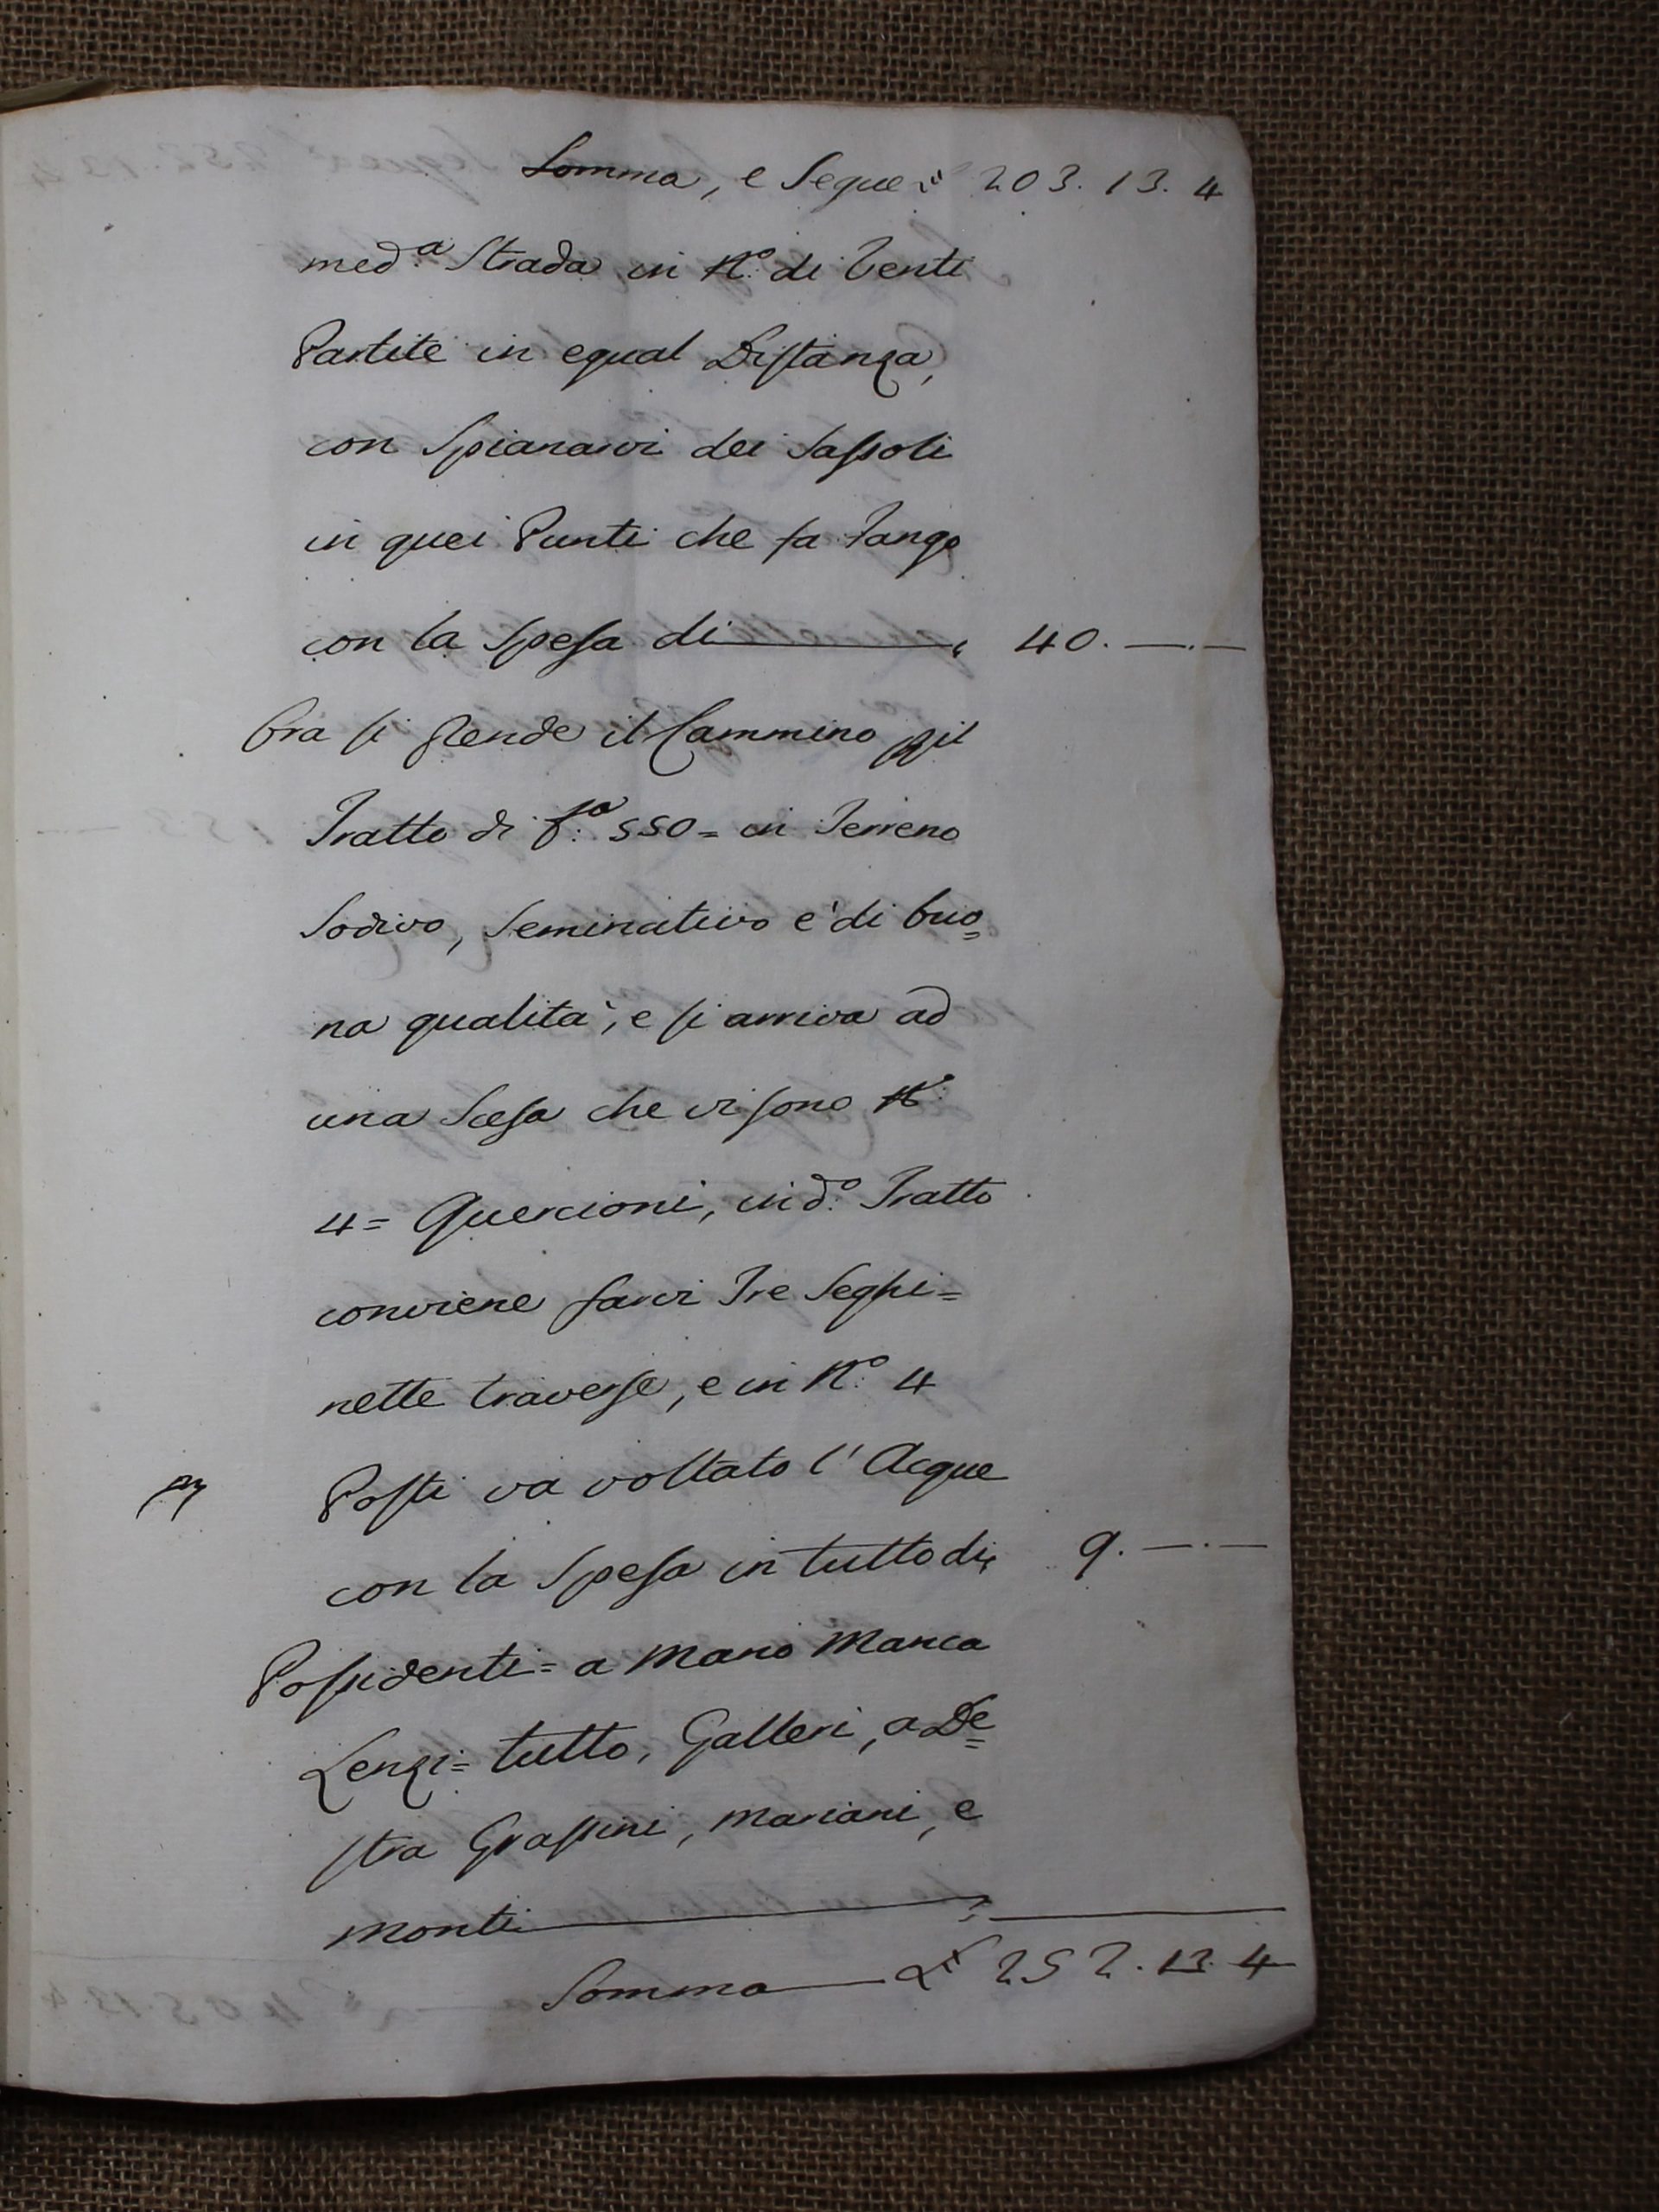 Somma, e Segue £ 203. 13. 4
med.ª Strada in N.º di Venti
Partite in equal Distanza,
con Spianarvi dei Sassoli
in quei Punti che fa fango
con la Spesa di 40. —.—
Ora si prende il Cammino p il
Tratto di 550= in Terreno
Sodivo, Seminativo e' di buo=
na qualità, e si arriva ad
una Scesa che vi sono N.º
4= Quercioni, in d.º Tratto
conviene farvi Tre Seghi=
nette traverse, e in N.º 4
Posti va voltato l'Acque
con la Spesa in tutto di, 9. —.—
Possidenti= a Mano Manca
Lenzi= tutto, Galleri, a De=
stra Grassini, Mariani, e
Monti
Somma £ 252. 13. 4